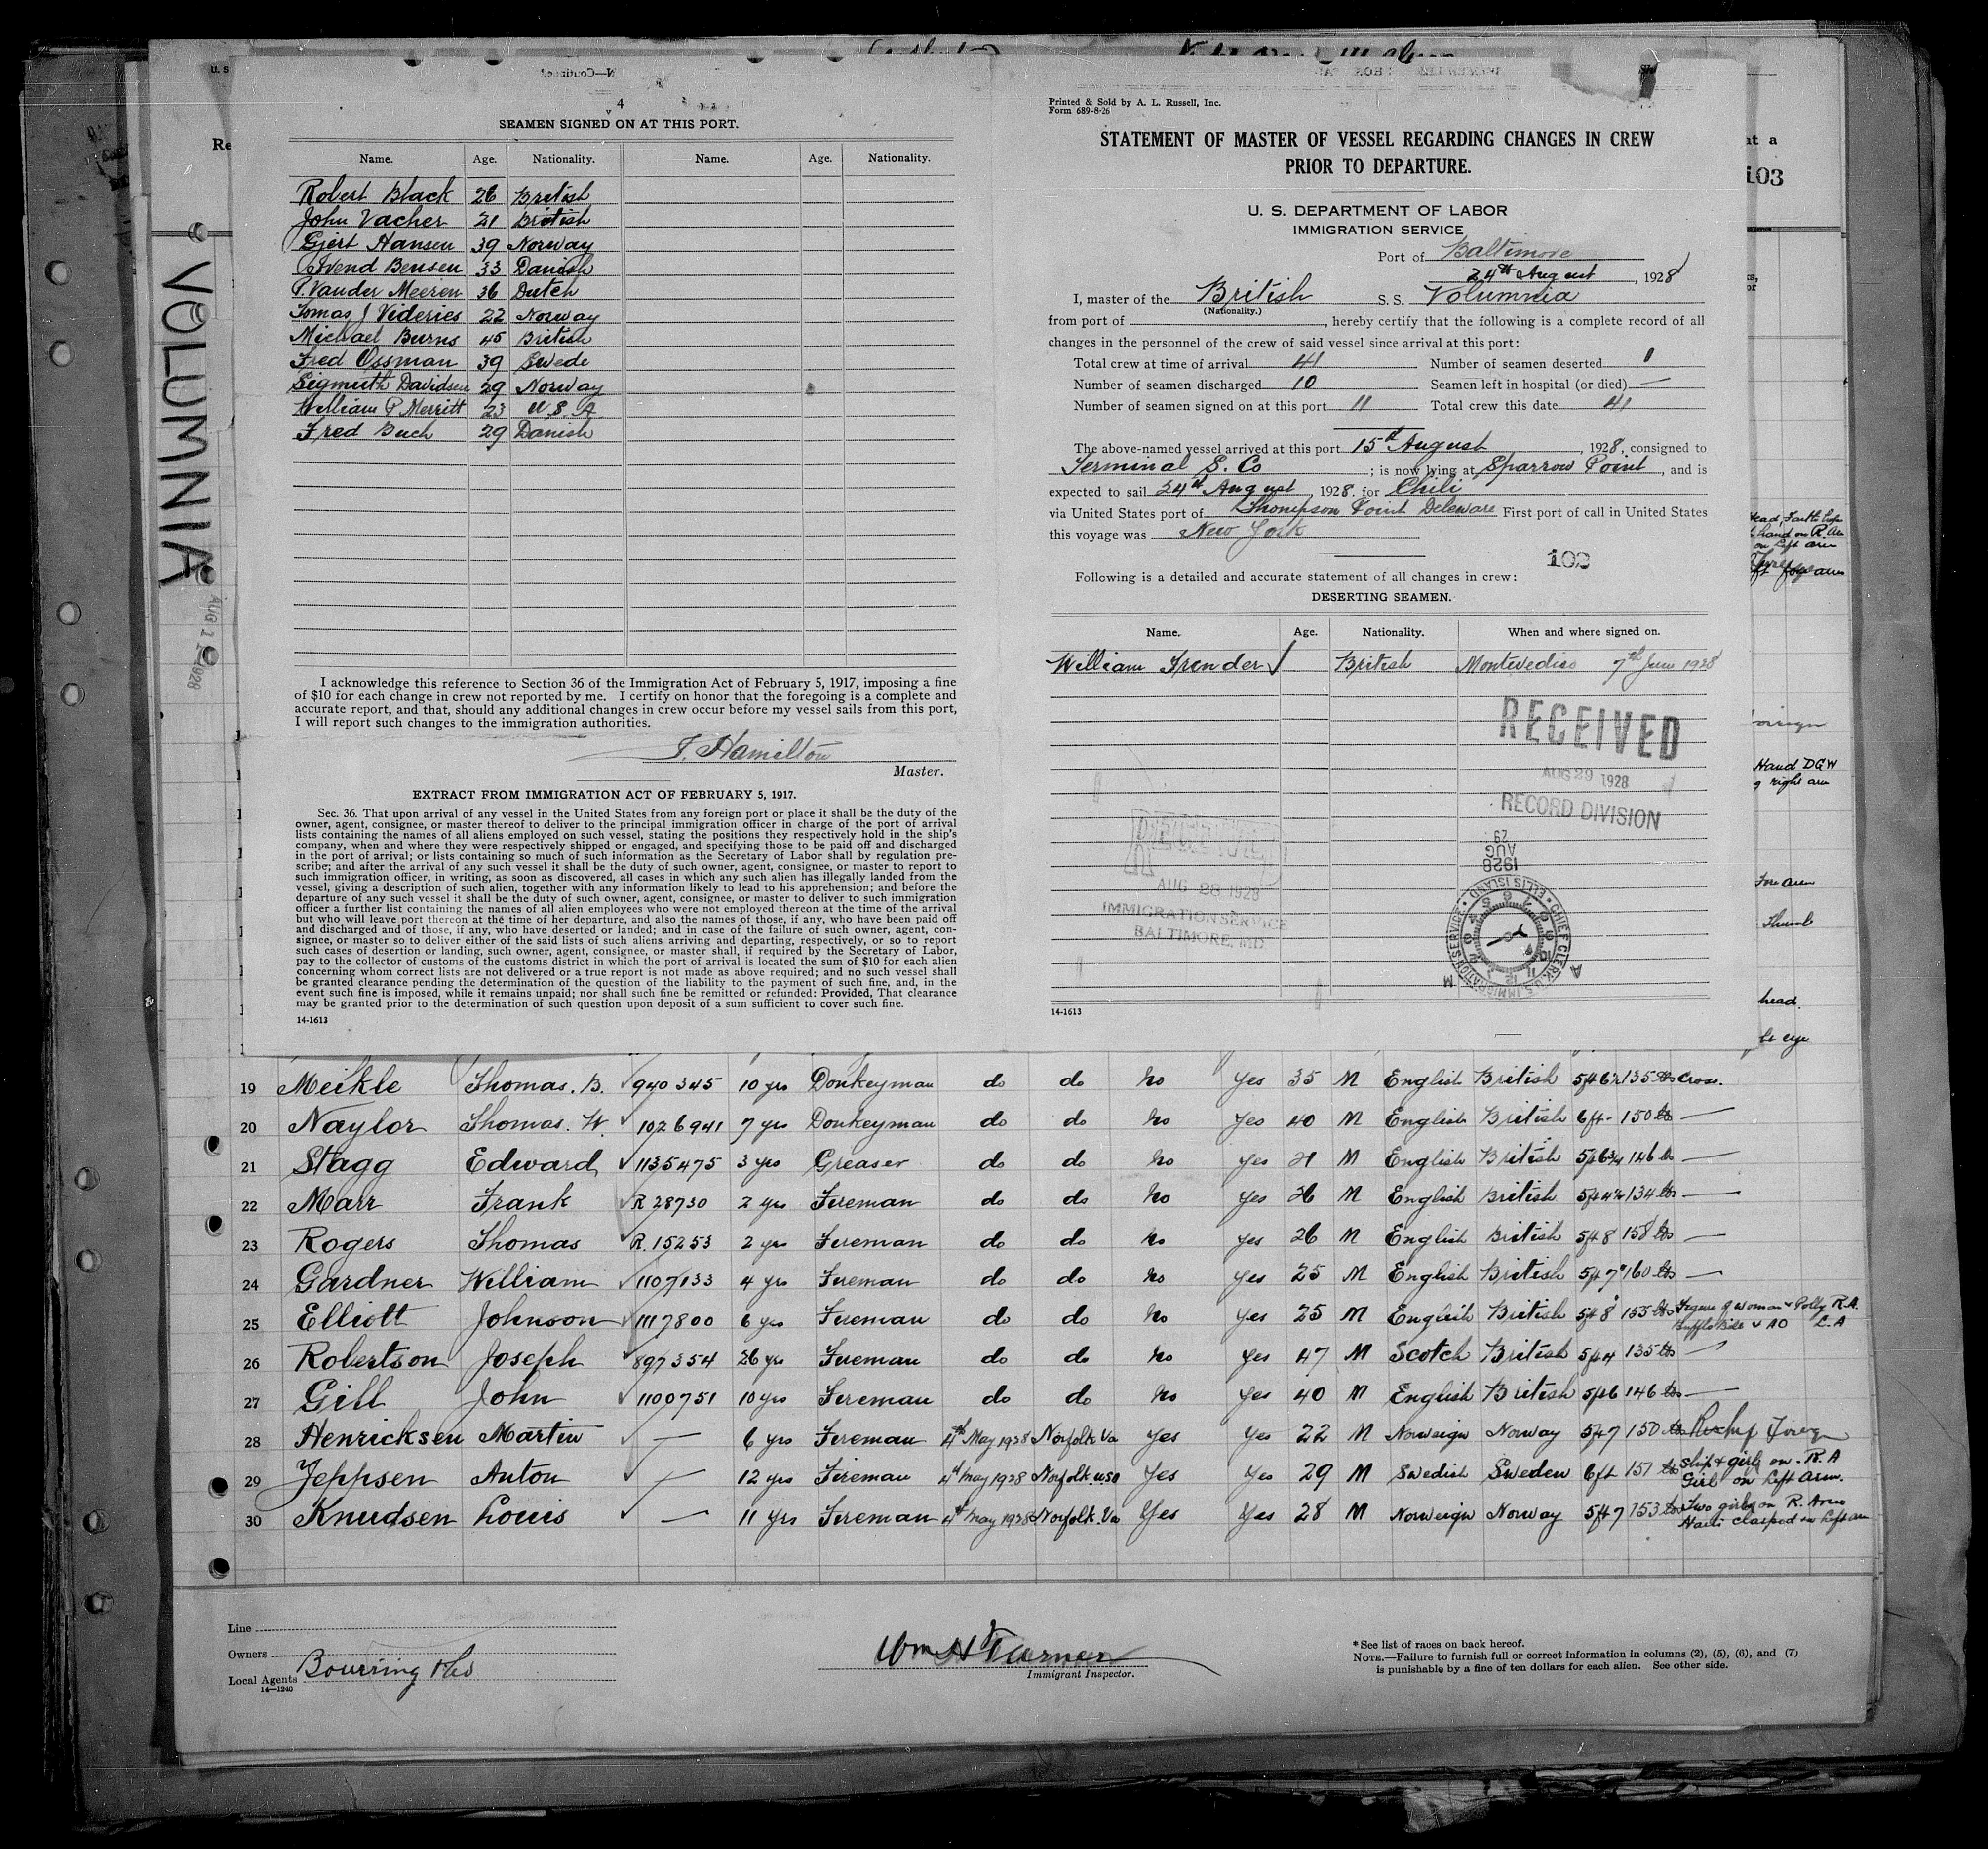 VOLUMNIA
AUG 1 1928
4
SEAMEN SIGNED ON AT THIS PORT.
Name. Age. Nationality. Name. Age. Nationality.
Robert Black 26 British
John Vacher 21 British
Gjert Hansen 39 Norway
Svend Bensen 33 Danish
P. Vander Meeren 36 Dutch
Tomas J Videries 22 Norway
Michael Burns 45 British
Fred Ossman 39 Swede
Sigmuth Davidsen 29 Norway
William P Merritt 23 U.S.A.
Fred Buch 29 Danish
I acknowledge this reference to Section 36 of the Immigration Act of February 5, 1917, imposing a fine
of $10 for each change in crew not reported by me. I certify on honor that the foregoing is a complete and
accurate report, and that, should any additional changes in crew occur before my vessel sails from this port,
I will report such changes to the immigration authorities.
J. Hamilton
Master.
EXTRACT FROM IMMIGRATION ACT OF FEBRUARY 5, 1917.
Sec. 36. That upon arrival of any vessel in the United States from any foreign port or place it shall be the duty of the
owner, agent, consignee, or master thereof to deliver to the principal immigration officer in charge of the port of arrival
lists containing the names of all aliens employed on such vessel, stating the positions they respectively hold in the ship's
company, when and where they were respectively shipped or engaged, and specifying those to be paid off and discharged
in the port of arrival; or lists containing so much of such information as the Secretary of Labor shall by regulation pre-
scribe; and after the arrival of any such vessel it shall be the duty of such owner, agent, consignee, or master to report to
such immigration officer, in writing, as soon as discovered, all cases in which any such alien has illegally landed from the
vessel, giving a description of such alien, together with any information likely to lead to his apprehension; and before the
departure of any such vessel it shall be the duty of such owner, agent, consignee, or master to deliver to such immigration
officer a further list containing the names of all alien employees who were not employed thereon at the time of the arrival
but who will leave port thereon at the time of her departure, and also the names of those, if any, who have been paid off
and discharged and of those, if any, who have deserted or landed; and in case of the failure of such owner, agent, con-
signee, or master so to deliver either of the said lists of such aliens arriving and departing, respectively, or so to report
such cases of desertion or landing, such owner, agent, consignee, or master shall, if required by the Secretary of Labor,
pay to the collector of customs of the customs district in which the port of arrival is located the sum of $10 for each alien
concerning whom correct lists are not delivered or a true report is not made as above required; and no such vessel shall
be granted clearance pending the determination of the question of the liability to the payment of such fine, and, in the
event such fine is imposed, while it remains unpaid; nor shall such fine be remitted or refunded: Provided, That clearance
may be granted prior to the determination of such question upon deposit of a sum sufficient to cover such fine.
14-1613
Printed & Sold by A. L. Russell, Inc.
Form 689-8-26
STATEMENT OF MASTER OF VESSEL REGARDING CHANGES IN CREW
PRIOR TO DEPARTURE.
U. S. DEPARTMENT OF LABOR
IMMIGRATION SERVICE
Port of Baltimore
24th August, 1928
I, master of the British S. S. Volumnia
(Nationality.)
from port of , hereby certify that the following is a complete record of all
changes in the personnel of the crew of said vessel since arrival at this port:
Total crew at time of arrival 41 Number of seamen deserted 1
Number of seamen discharged 10 Seamen left in hospital (or died) —
Number of seamen signed on at this port 11 Total crew this date 41
The above-named vessel arrived at this port 15th August, 1928, consigned to
Terminal S. Co ; is now lying at Sparrow Point, and is
expected to sail 24th August, 1928. for Chili
via United States port of Thompson Point Deleware First port of call in United States
this voyage was New York
102
Following is a detailed and accurate statement of all changes in crew:
DESERTING SEAMEN.
Name. Age. Nationality. When and where signed on.
William Trender ✓ British Montevedeo 7th June 1928
RECEIVED
AUG 29 1928
RECORD DIVISION
AUG 28 1928
IMMIGRATION SERVICE
BALTIMORE, MD.
29
AUG
1928
CHIEF CLERK, U.S. IMMIGRATION SERVICE, ELLIS ISLAND
14-1613
at a
103
Hand DGW
right arm
Fore arm
Thumb
head.
19 Meikle Thomas. B. ✓ 940345 10 yrs Donkeyman do do No Yes 35 M English British 5ft 6½ 135 lbs Cross.
20 Naylor Thomas. W. ✓ 1026941 7 yrs Donkeyman do do No Yes 40 M English British 6 ft - 150 lbs —
21 Stagg Edward ✓ 1135475 3 yrs Greaser do do No Yes 21 M English British 5ft 6¾ 146 lbs —
22 Marr Frank R 28730 2 yrs Fireman do do No Yes 26 M English British 5ft 4½ 134 lbs —
23 Rogers Thomas R. 15253 2 yrs Fireman do do No Yes 26 M English British 5ft 8 158 lbs —
24 Gardner William ✓ 1107133 4 yrs Fireman do do No Yes 25 M English British 5ft 7" 160 lbs —
25 Elliott Johnson ✓ 1117800 6 yrs Fireman do do No Yes 25 M English British 5ft 8 155 lbs Figure of woman & Polly R.A.
Bufflo Bill & AO L.A
26 Robertson Joseph ✓ 897354 26 yrs Fireman do do No Yes 47 M Scotch British 5ft 4 135 lbs —
27 Gill John ✓ 1100751 10 yrs Fireman do do No Yes 40 M English British 5ft 6 146 lbs —
28 Henricksen Martin ✓ — 6 yrs Fireman 4th May 1928 Norfolk Va Yes Yes 22 M Norweign Norway 5ft 7 150 lbs
29 Jeppsen Anton ✓ — 12 yrs Fireman 4th May 1928 Norfolk. USA Yes Yes 29 M Swedish Sweden 6 ft 151 lbs Ship & girl on R.A
Girl on Left arm.
30 Knudsen Louis ✓ — 11 yrs Fireman 4th May 1928 Norfolk. Va Yes Yes 28 M Norweign Norway 5ft 7 153 lbs Two girls on R. Arm
clasped on Left arm
Line
Owners
Local Agents Bowring & Co
14—1240
Wm H Turner
Immigrant Inspector.
* See list of races on back hereof.
NOTE.—Failure to furnish full or correct information in columns (2), (5), (6), and (7)
is punishable by a fine of ten dollars for each alien. See other side.